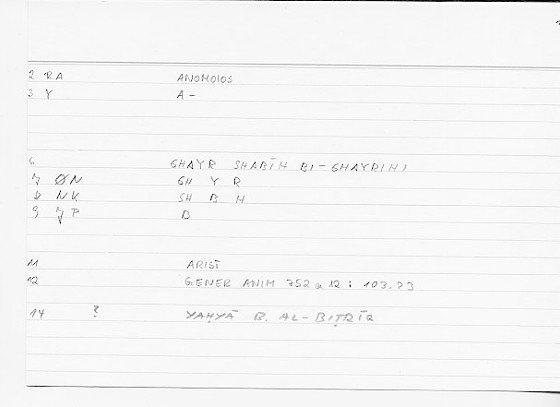 2 RA ANOMOIOS
3 Y A-
6 GHAYR SHABĪH BI-GHAYRIHI
7 ØN GH Y R
8 NK SH B H
9 JP B
11 ARIST
12 GENER ANIM 752 a 12 : 103.23
14 ? YAḤYĀ B. AL-BIṬRĪQ